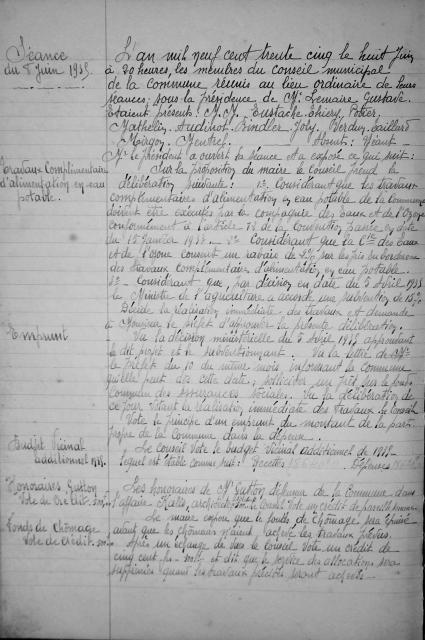 Séance
du 8 Juin 1935.
L'an mil neuf cent trente cinq le huit Juin
à 20 heures, les membres du conseil municipal
de la commune réunis au lieu ordinaire de leurs
séances, sous la présidence de Mr Lemaire Gustave.
Etaient présents: M.M. Eustache, Thiery, Potier,
Mathelin, Audinot, Rindler, Joly, Verdun, Gaillard
Absent: Néant
Mr le président a ouvert la séance et a exposé ce qui suit:
Travaux Complémentaires
d'alimentation en eau
potable.
Sur la proposition du maire le Conseil prend la
délibération suivante: 1º Considérant que les travaux
complémentaires d'alimentation en eau potable de la Commune
doivent être exécutés par la Compagnie des Eaux et de l'Ozone
conformément à l'article 18 de la Convention passée en date
du 15 Janvier 1933 - 2º Considérant que la Cie des Eaux
et de l'Ozone consent un rabais de % sur les prix du bordereau
des travaux complémentaires d'alimentation en eau potable.
3º Considérant que, par décision en date du 5 Avril 1935
le Ministre de l'agriculture a accordé une subvention de 15%
Décide la réalisation immédiate des travaux et demande
à Monsieur le préfet d'approuver la présente délibération.
Emprunt
Vu la décision ministérielle du 5 Avril 1935 approuvant
le dit projet et le subventionnant. Vu la lettre de Mr
le Préfet du 10 du même mois informant la Commune
qu'elle peut dès cette date, solliciter un prêt sur le fonds
commun des assurances sociales. Vu la délibération de
ce jour votant la réalisation immédiate des travaux le Conseil
Vote le principe d'un emprunt du montant de la part
propre de la Commune dans la dépense.
Budget Vicinal
additionnel 1935.
Le Conseil vote le budget Vicinal additionnel de 1935
lequel est établi comme suit: Recettes Dépenses
Honoraires Gutton
Vote de Crédit.
Les honoraires de Mr Gutton défenseur de la Commune dans
l'affaire architecte le Conseil vote un crédit de pareille somme.
Fonds de Chômage
Vote de Crédit.
Le maire expose que le fonds de chômage sera épuisé
avant que les chômeurs n'aient achevé les travaux prévus.
Après un échange de vues le Conseil vote un crédit de
cinq cent frs et dit que le service des allocations sera
supprimé quand les travaux précités seront achevés